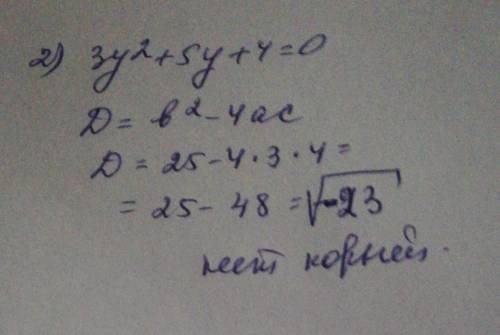 2) 3y²+5y+4=0
D = b²-4ac
D = 25-4·3·4=
= 25-48 = √-23
нет корней.